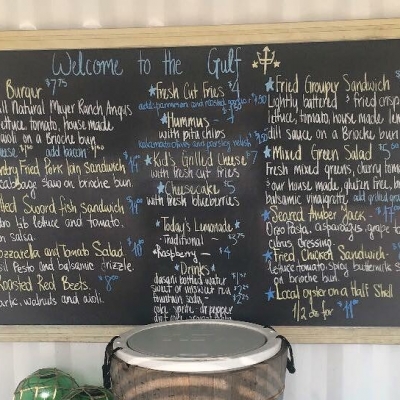 Welcome to the Gulf
Burger $7.75
All Natural Meyer Ranch Angus
lettuce, tomato, house made
aioli on a Brioche bun
add bacon
Fried Pork loin Sandwich
cabbage slaw on brioche bun.
Sword fish sandwich
lettuce and tomato,
salsa.
Mozzarella and Tomato Salad
Pesto and balsamic drizzle.
Roasted Red Beets
garlic, walnuts and aioli.
Fresh Cut Fries $4
add parmesan and roasted
Hummus
with pita chips
kalamata olives and parsley relish
Kid's Grilled Cheese $7
with fresh cut fries
Cheesecake $5
with fresh blueberries
Today's Lemonade
Traditional - 3.75
Raspberry - 4
Drinks
dasani bottled water
sweet or unsweet tea
fountain soda -
coke sprite dr pepper
Fried Grouper Sandwich
Lightly battered & fried crisp
lettuce, tomato, house made
dill sauce on a Brioche bun
Mixed Green Salad
Mixed fresh greens, cherry
our house made, gluten free,
balsamic vinaigrette add grilled
Seared Amber Jack -
Orzo Pasta, asparagus, grape
citrus dressing.
Fried Chicken Sandwich-
lettuce tomato, spicy buttermilk
on brioche bun
Local oyster on a Half Shell
1/2 doz for $11.00